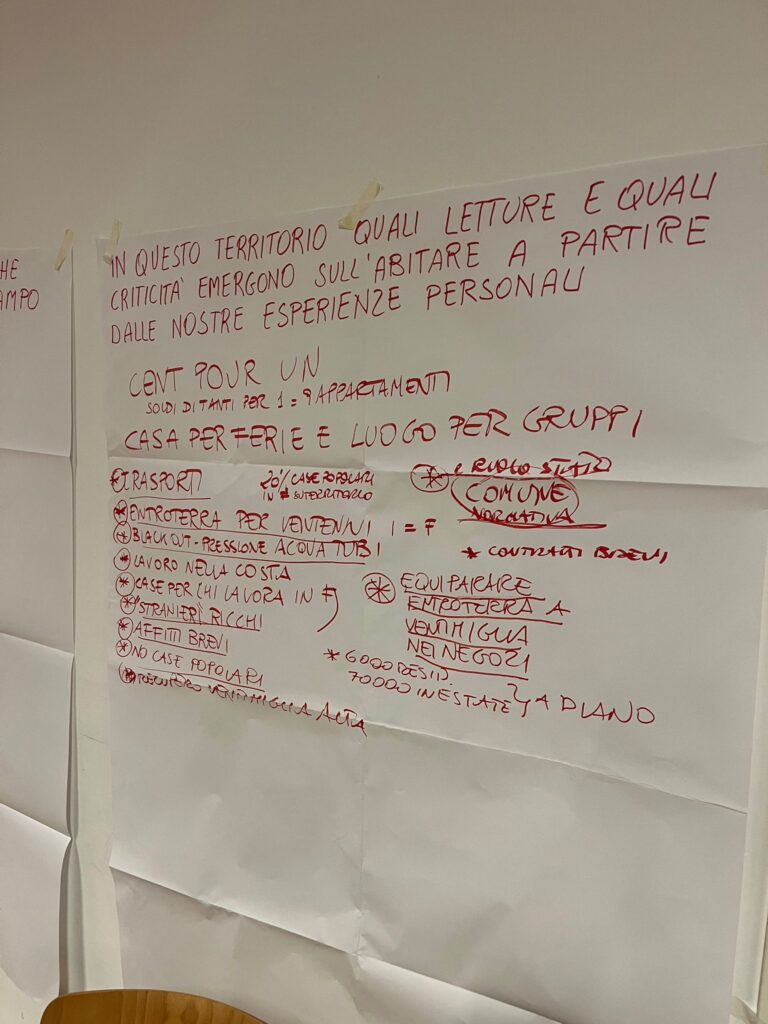 HE
AMPO
IN QUESTO TERRITORIO QUALI LETTURE E QUALI
CRITICITÀ EMERGONO SULL'ABITARE A PARTIRE
DALLE NOSTRE ESPERIENZE PERSONALI
CENT POUR UN
SOLDI DI TANTI PER 1 = 9 APPARTAMENTI
CASA PER FERIE E LUOGO PER GRUPPI
TRASPORTI
20% CASE POPOLARI
IN ≠ SU TERRITORIO
* ENTROTERRA PER VENTENNI I = F
* BLACK OUT - PRESSIONE ACQUA TUBI
* LAVORO NELLA COSTA
* CASE PER CHI LAVORA IN F
* STRANIERI RICCHI
* AFFITTI BREVI
* NO CASE POPOLARI
* RECUPERO VENTIMIGLIA ALTA
* E RUOLO STATO
COMUNE
NORMATIVA
* CONTRATTI BREVI
* EQUIPARARE
ENTROTERRA A
VENTIMIGLIA
NEI NEGOZI
* 6000 RESID.
70000 IN ESTATE
PIANO